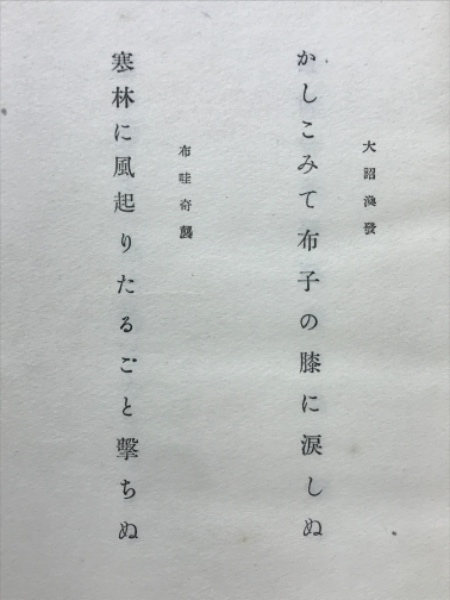 大詔渙發
かしこみて布子の膝に涙しぬ
布哇奇襲
寒林に風起りたるごと擊ちぬ